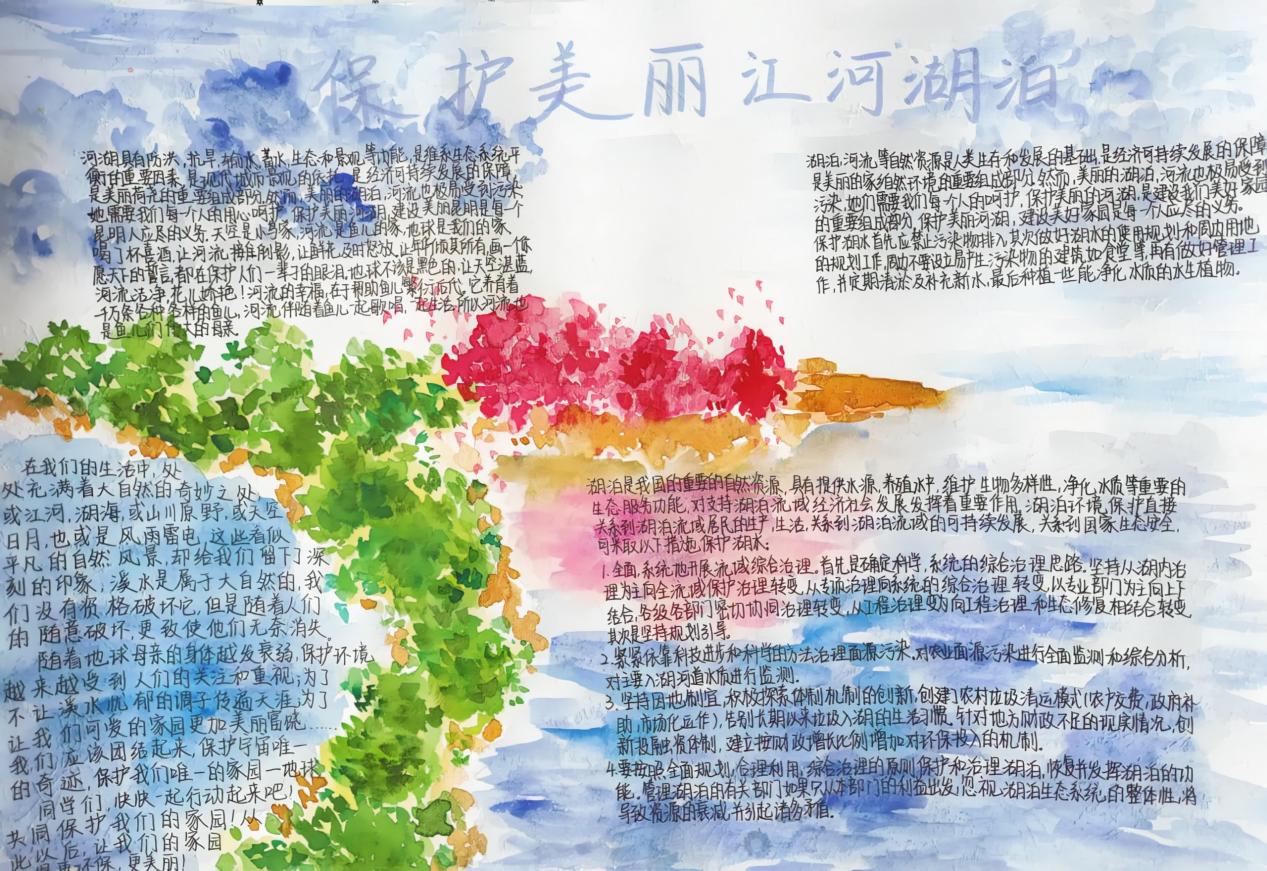 保护美丽江河湖泊
河湖具有防洪,抗旱,输水,蓄水,生态和景观等功能,是维系生态系统平
衡的重要因素,是现代城市景观的依托,是经济可持续发展的保障,
是美丽的重要组成部分.然而,美丽的湖泊,河流也极易受到污染
她需要我们每个人的用心呵护,保护美丽河湖,建设美丽昆明是每个
昆明人应尽的义务.天空是小鸟家,河流是鱼儿的家,地球是我们的家,
喝了杯喜酒,让河流撤销倒影,让鲜花及时怒放,让知了倾其所有,画一条
愿天下的誓言,都在保护人们一辈子的眼泪,地球不该是黑色的,让天空湛蓝,
河流洁净,花儿娇艳!河流的幸福,在于帮助鱼儿繁衍后代,它养育着
千万条各种各样的鱼儿,河流伴随着鱼儿一起歌唱,一起生活,所以河流也
是鱼儿们伟大的母亲.
湖泊,河流等自然资源是人类生存和发展的基础,是经济可持续发展的保障
是美丽的家乡自然环境的重要组成部分,然而,美丽的湖泊,河流也极易受到
污染,她们需要我们每一个人的呵护,保护美丽的河湖,是建设我们美好家园
的重要组成部分,保护美丽河湖,建设美好家园是每一个人应尽的义务.
保护湖水首先应禁止污染物排入,其次做好湖水的使用规划和周边用地
的规划工作,周边不要设立易产生污染物的建筑如食堂等,再有做好管理工
作,并定期清淤及补充新水,最后种植一些能净化水质的水生植物.
在我们的生活中,处
处充满着大自然的奇妙之处
或江河,湖海,或山川原野,或天空
日月,也或是风雨雷电,这些看似
平凡的自然风景,却给我们留下深
刻的印象.溪水是属于大自然的,我
们没有资格破坏它,但是随着人们
的随意破坏,更致使他们无奈消失.
随着地球母亲的身体越发衰弱,保护环境
越来越受到人们的关注和重视;为了
不让溪水忧郁的调子传遍天涯,为了
让我们可爱的家园更加美丽富饶……
我们应该团结起来,保护宇宙唯一
的奇迹,保护我们唯一的家园—地球
同学们,快快一起行动起来吧!
共同保护我们的家园!从
此以后,让我们的家园
更环保,更美丽!
湖泊是我国的重要的自然资源,具有提供水源,养殖水中,维护生物多样性,净化水质等重要的
生态服务功能,对支持湖泊流域经济社会发展发挥着重要作用,湖泊环境保护直接
关系到湖泊流域居民的生产,生活,关系到湖泊流域的可持续发展,关系到国家生态安全,
可采取以下措施保护湖水:
1.全面,系统地开展流域综合治理,首先是确定科学,系统的综合治理思路,坚持从湖内治
理为主向全流域保护治理转变,从专项治理向系统的综合治理转变,以专业部门为主向上下
结合,各级各部门紧切协同治理转变,从工程治理为向工程治理和生态修复相结合转变
其次是坚持规划引导.
2.紧紧依靠科技进步和科学的方法治理面源污染,对农业面源污染进行全面监测和综合分析,
对主要入湖河道水质进行监测.
3.坚持因地制宜,积极探索体制机制的创新,创建了农村垃圾清运模式(农户交费,政府补
助,市场化运作),告别长期以来垃圾入湖的生活习惯,针对地方财政不足的现实情况,创
新投融资体制,建立按财政增长比例增加对环保投入的机制.
4.要按照全面规划,合理利用,综合治理的原则保护和治理湖泊,恢复并发挥湖泊的功
能。管理湖泊的有关部门如果只从本部门的利益出发,忽视湖泊生态系统的整体性,将
导致资源的衰减,并引起诸多矛盾.